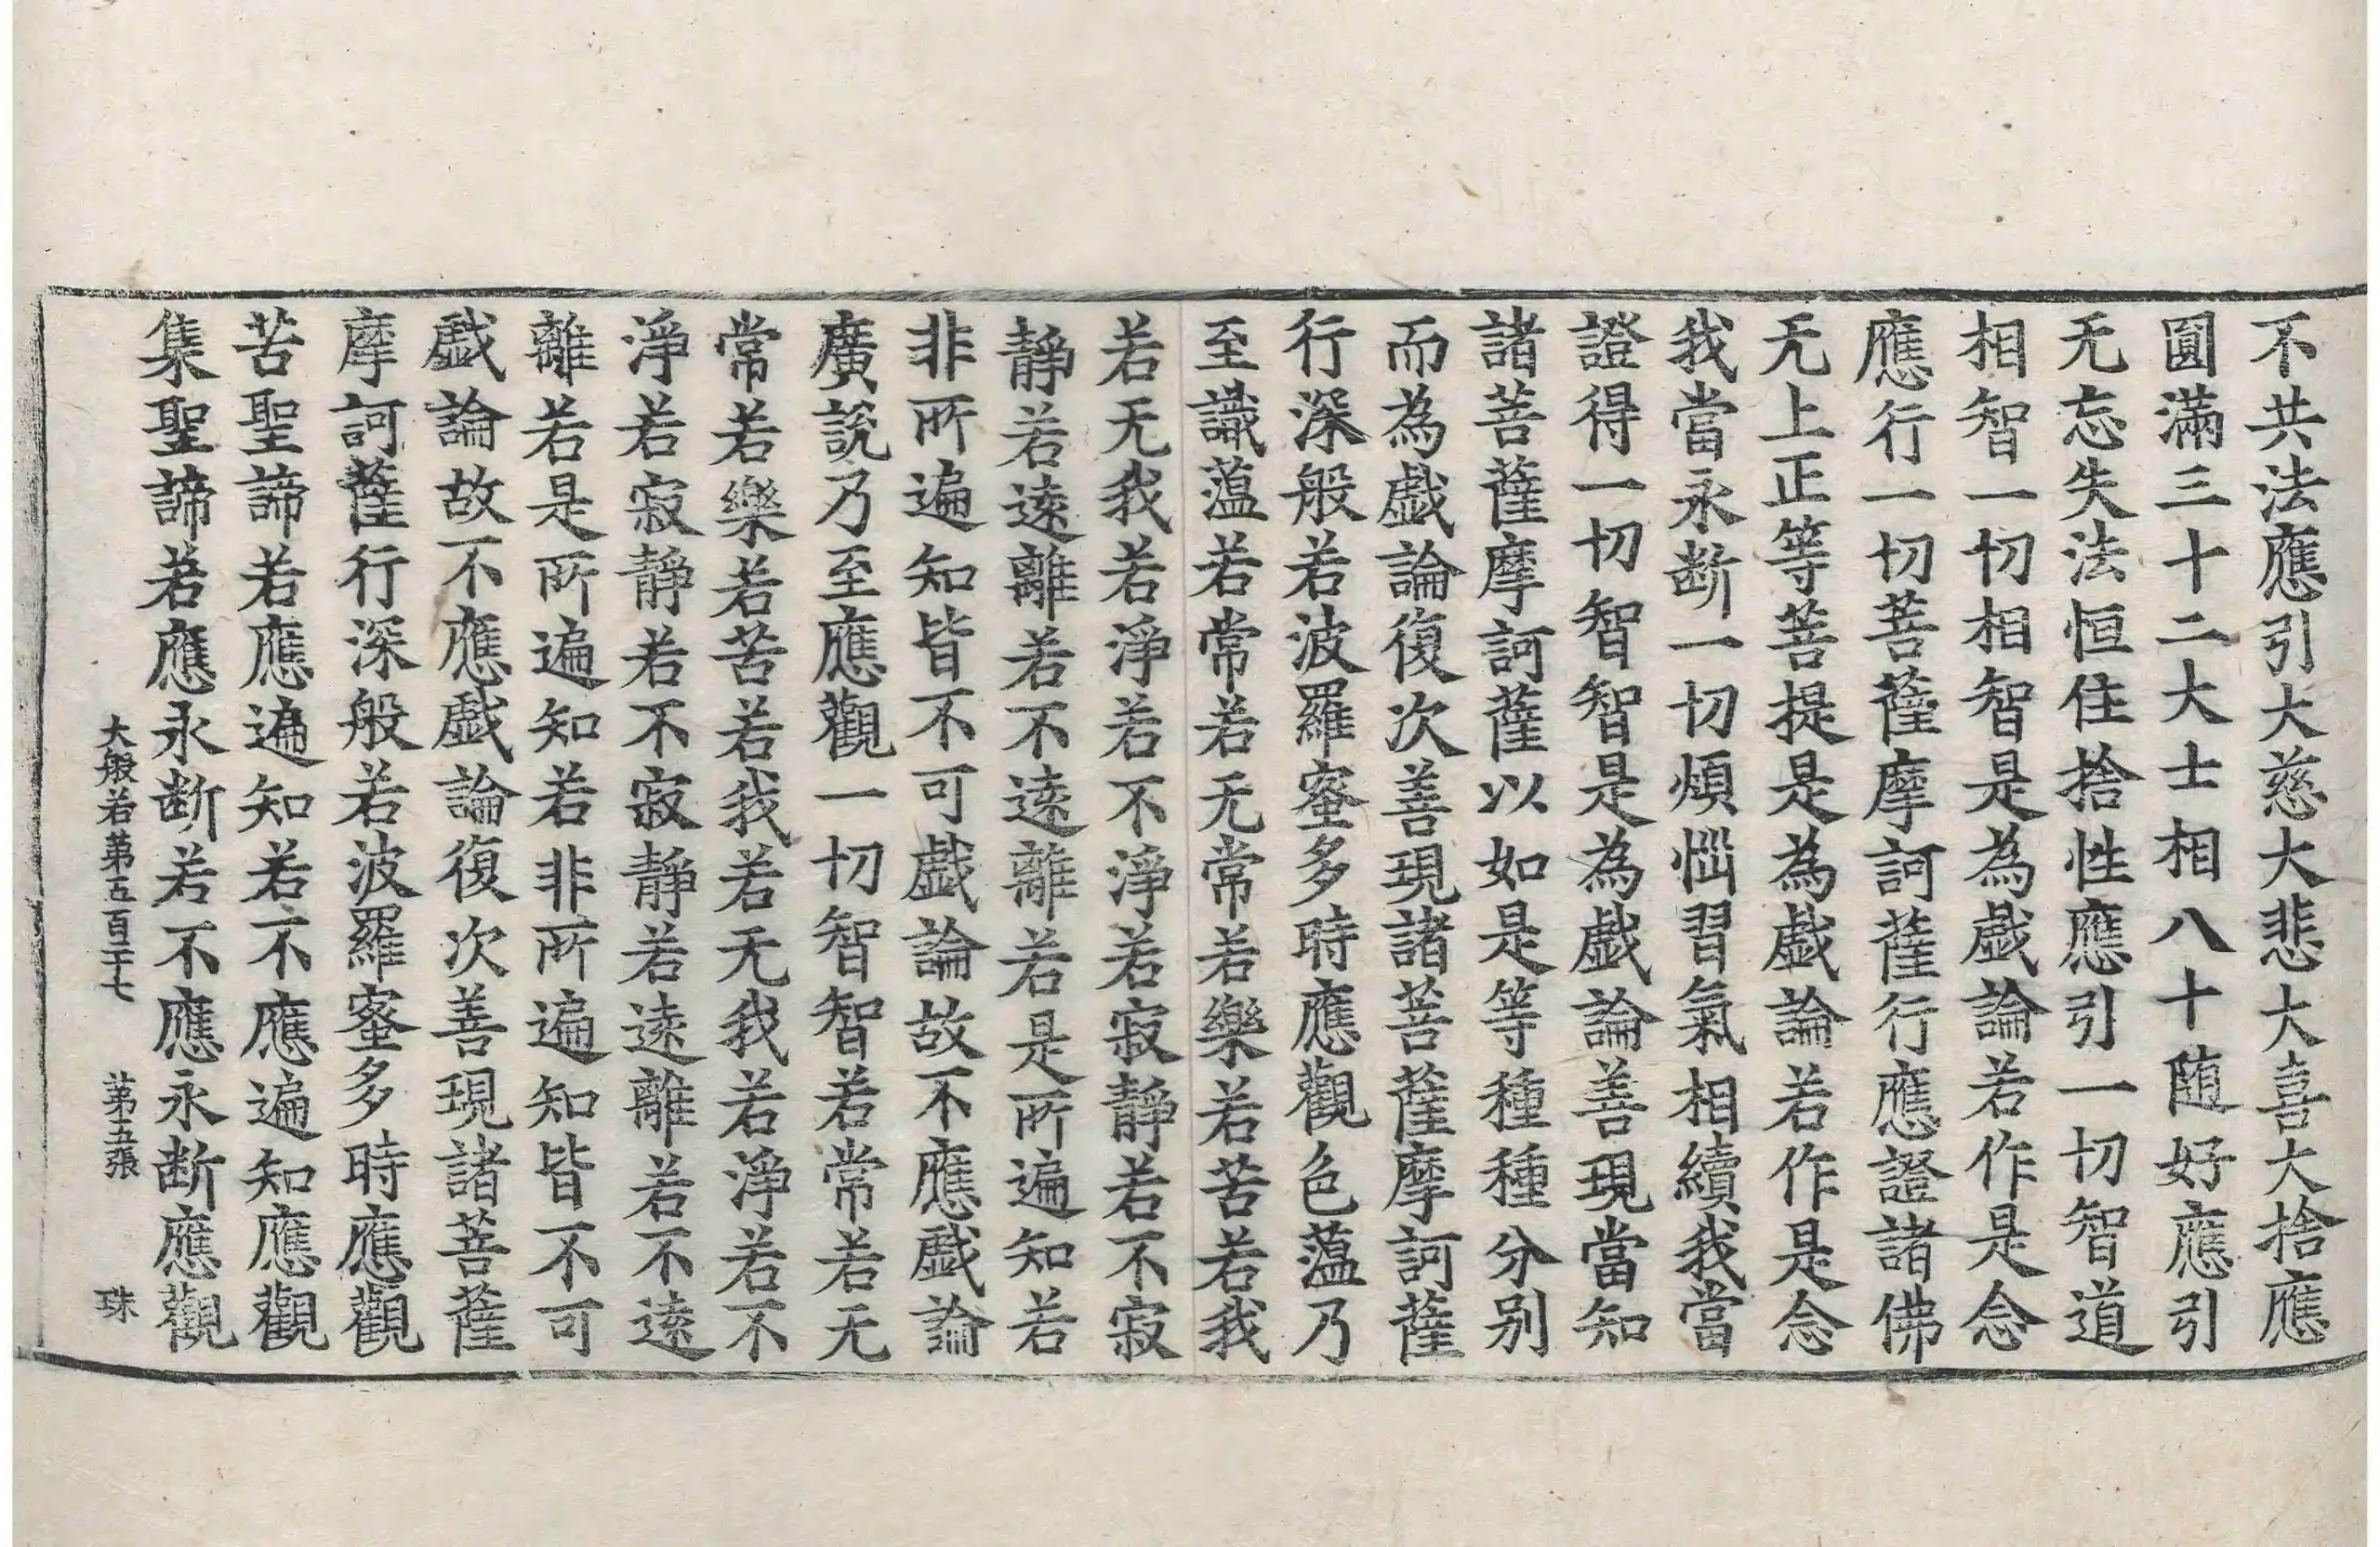 不共法應引大慈大悲大喜大捨應
圓滿三十二大士相八十随好應引
无忘失法恒住捨性應引一切智道
相智一切相智是為戱論若作是念
應行一切菩薩摩訶薩行應證諸佛
无上正等菩提是為戱論若作是念
我當永断一切煩惱習氣相續我當
證得一切智智是為戱論善現當知
諸菩薩摩訶薩以如是等種種分别
而為戱論復次善現諸菩薩摩訶薩
行深般若波羅蜜多時應觀色蘊乃
至識蘊若常若无常若樂若苦若我
若无我若淨若不淨若寂靜若不寂
靜若逺離若不逺離若是所遍知若
非所遍知皆不可戱論故不應戱論
廣說乃至應觀一切智智若常若无
常若樂若苦若我若无我若淨若不
淨若寂靜若不寂靜若逺離若不逺
離若是所遍知若非所遍知皆不可
戱論故不應戱論復次善現諸菩薩
摩訶薩行深般若波羅蜜多時應觀
苦聖諦若應遍知若不應遍知應觀
集聖諦若應永断若不應永断應觀
大般若第五百二十七 第五張 珠